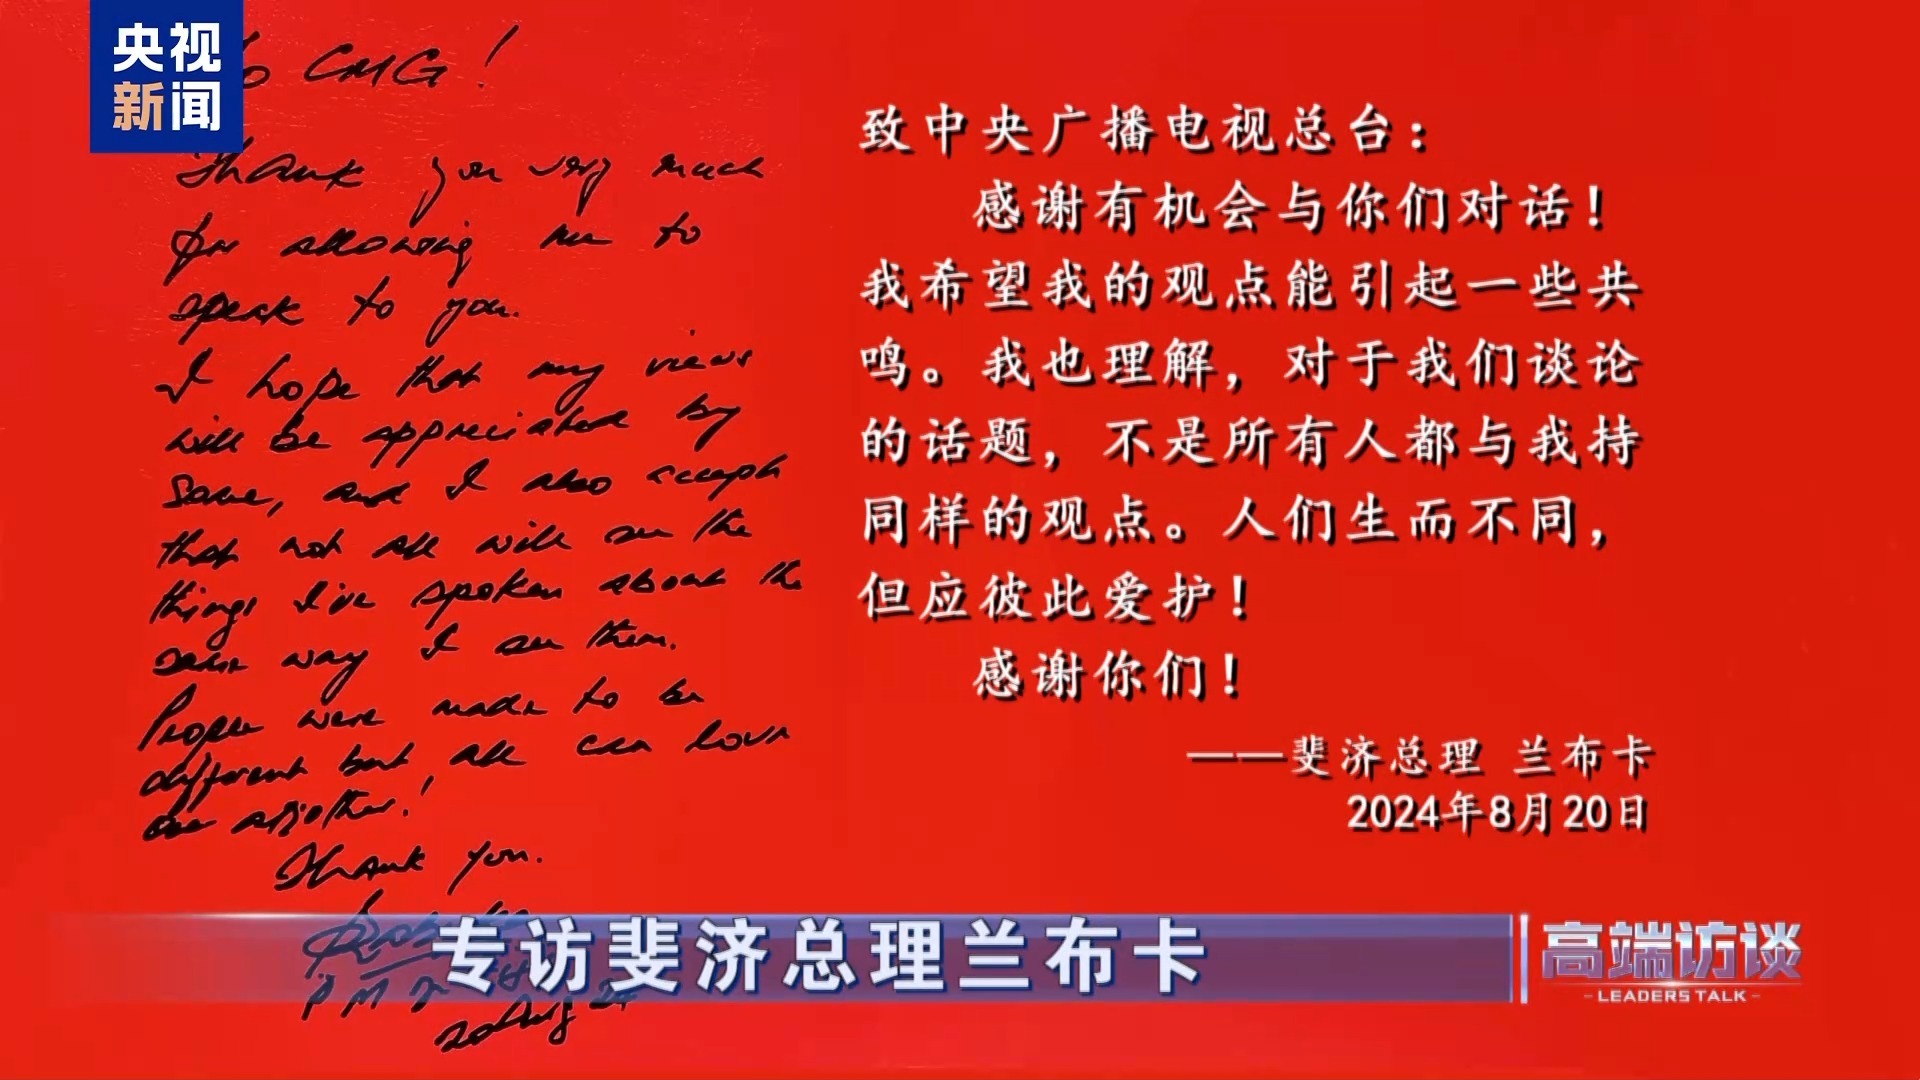 央视
新闻
To CMG!
Thank you very much
for allowing me to
speak to you.
I hope that my views
will be appreciated by
some, and I also accept
that not all will see the
things I've spoken about the
same way I see them.
People were made to be
different but, all can love
one another.!
Thank you.
20 Aug 24
致中央广播电视总台：
感谢有机会与你们对话！
我希望我的观点能引起一些共
鸣。我也理解，对于我们谈论
的话题，不是所有人都与我持
同样的观点。人们生而不同，
但应彼此爱护！
感谢你们！
——斐济总理 兰布卡
2024年8月20日
专访斐济总理兰布卡
高端访谈
- LEADERS TALK -